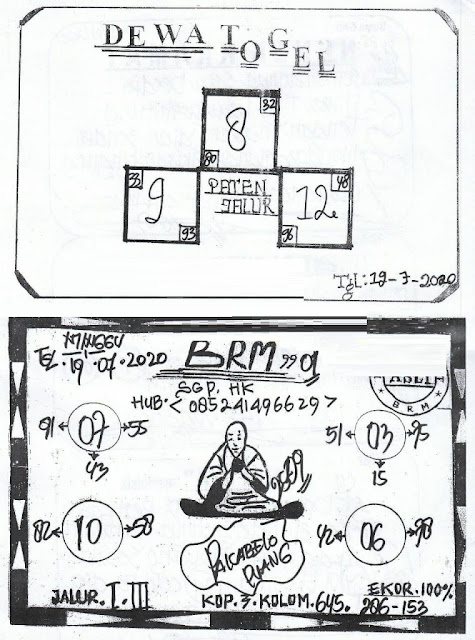 DEWA TOGEL
32
8
80
33
9
93
PATEN
JALUR
48
12
96
Tgl: 19-7-2020
MINGGU
TGL. 19.07.2020
BRM
SGP. HK
HUB. < 085241496629 >
ASLI
BRM
91 07 55
43
51 03 95
15
82 10 58
42 06 98
JALUR. I. III
KOP. 3. KOLOM. 645.
EKOR. 100%
206-153